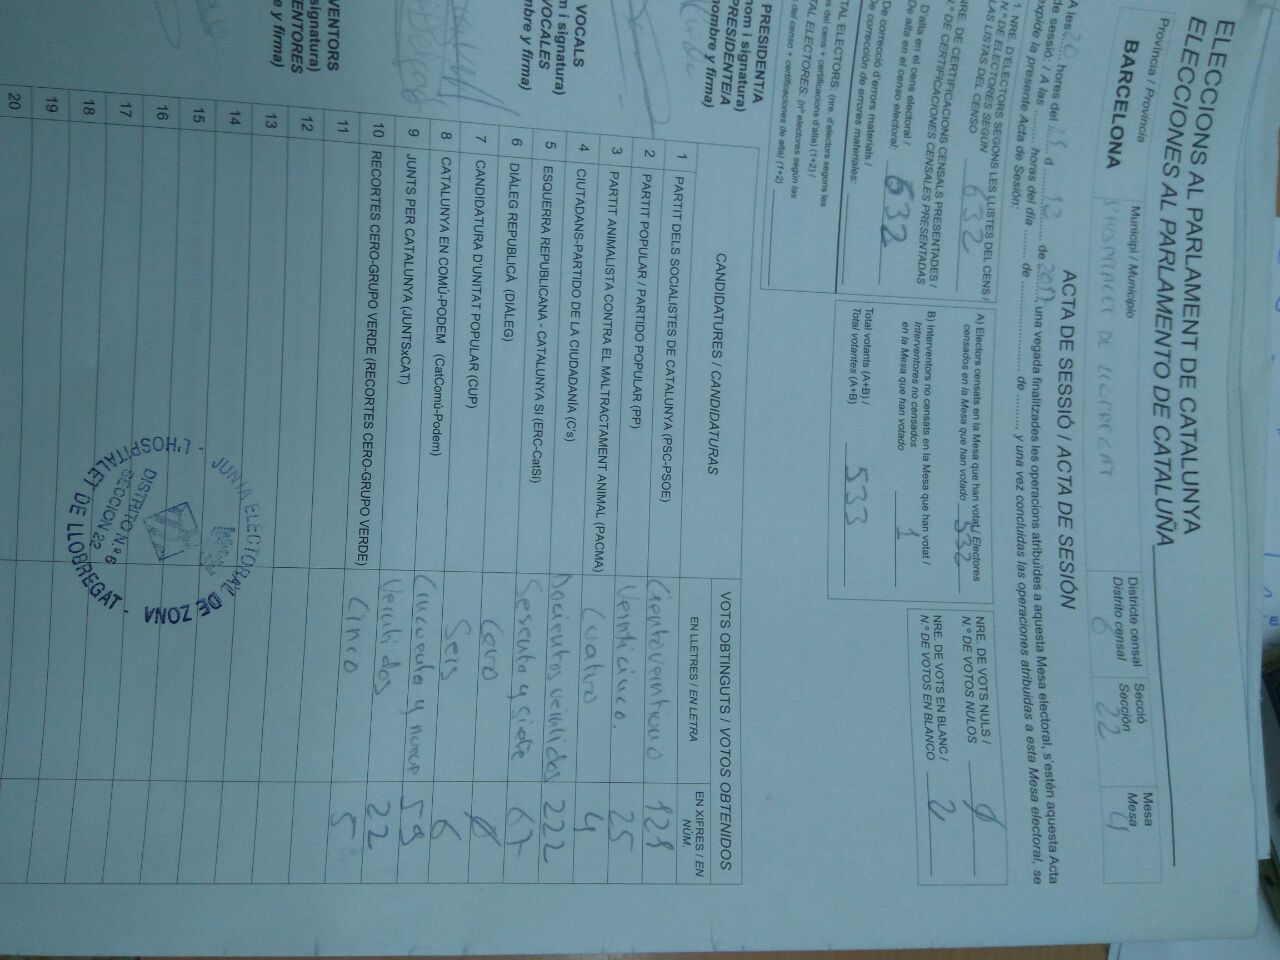 ELECCIONS AL PARLAMENT DE CATALUNYA
ELECCIONES AL PARLAMENTO DE CATALUÑA
Província / Provincia
BARCELONA
Municipi / Municipio
L'HOSPITALET DE LLOBREGAT
Districte censal
Distrito censal
6
Secció
Sección
22
Mesa
Mesa
4
ACTA DE SESSIÓ / ACTA DE SESIÓN
A les 20 hores del d 12 de 2017, una vegada finalitzades les operacions atribuïdes a aquesta Mesa electoral, s'estén aquesta Acta
de sessió. / A las ........ horas del día ........ de ........ de ........, y una vez concluidas las operaciones atribuidas a esta Mesa electoral, se
expide la presente Acta de Sesión:
1. NRE. D'ELECTORS SEGONS LES LLISTES DEL CENS /
N.º DE ELECTORES SEGÚN
LAS LISTAS DEL CENSO 632
NRE. DE CERTIFICACIONS CENSALS PRESENTADES /
N.º DE CERTIFICACIONES CENSALES PRESENTADAS
D'alta en el cens electoral /
De alta en el censo electoral: 632
De correcció d'errors materials /
De corrección de errores materiales:
TAL ELECTORS: (nre. d'electors segons les
es del cens + certificacions d'alta) (1+2) /
TAL ELECTORES: (nº electores según las
del censo + certificaciones de alta) (1+2)
A) Electors censats en la Mesa que han votat / Electores
censados en la Mesa que han votado 532
B) Interventors no censats en la Mesa que han votat /
Interventores no censados
en la Mesa que han votado 1
Total votants (A+B) /
Total votantes (A+B) 533
NRE. DE VOTS NULS /
N.º DE VOTOS NULOS 0
NRE. DE VOTS EN BLANC /
N.º DE VOTOS EN BLANCO 2
CANDIDATURES / CANDIDATURAS
VOTS OBTINGUTS / VOTOS OBTENIDOS
EN LLETRES / EN LETRA
EN XIFRES / EN NÚM.
1 PARTIT DELS SOCIALISTES DE CATALUNYA (PSC-PSOE) 121
2 PARTIT POPULAR / PARTIDO POPULAR (PP) Veinticinco. 25
3 PARTIT ANIMALISTA CONTRA EL MALTRACTAMENT ANIMAL (PACMA) Cuatro 4
4 CIUTADANS-PARTIDO DE LA CIUDADANÍA (C's) Docientos veintidos 222
5 ESQUERRA REPUBLICANA - CATALUNYA SI (ERC-CatSí) Sesenta y siete 67
6 DIÀLEG REPUBLICÀ (DIÀLEG) Cero 0
7 CANDIDATURA D'UNITAT POPULAR (CUP) Seis 6
8 CATALUNYA EN COMÚ-PODEM (CatComú-Podem) Cincuenta y nueve 59
9 JUNTS PER CATALUNYA (JUNTSxCAT) Veintidos 22
10 RECORTES CERO-GRUPO VERDE (RECORTES CERO-GRUPO VERDE) Cinco 5
11
12
13
14
15
16
17
18
19
20
PRESIDENT/A
nom i signatura)
PRESIDENTE/A
nombre y firma)
VOCALS
m i signatura)
VOCALES
mbre y firma)
VENTORS
signatura)
VENTORES
e y firma)
JUNTA ELECTORAL DE ZONA
- L'HOSPITALET DE LLOBREGAT -
DISTRITO N.º 6
SECCION 22